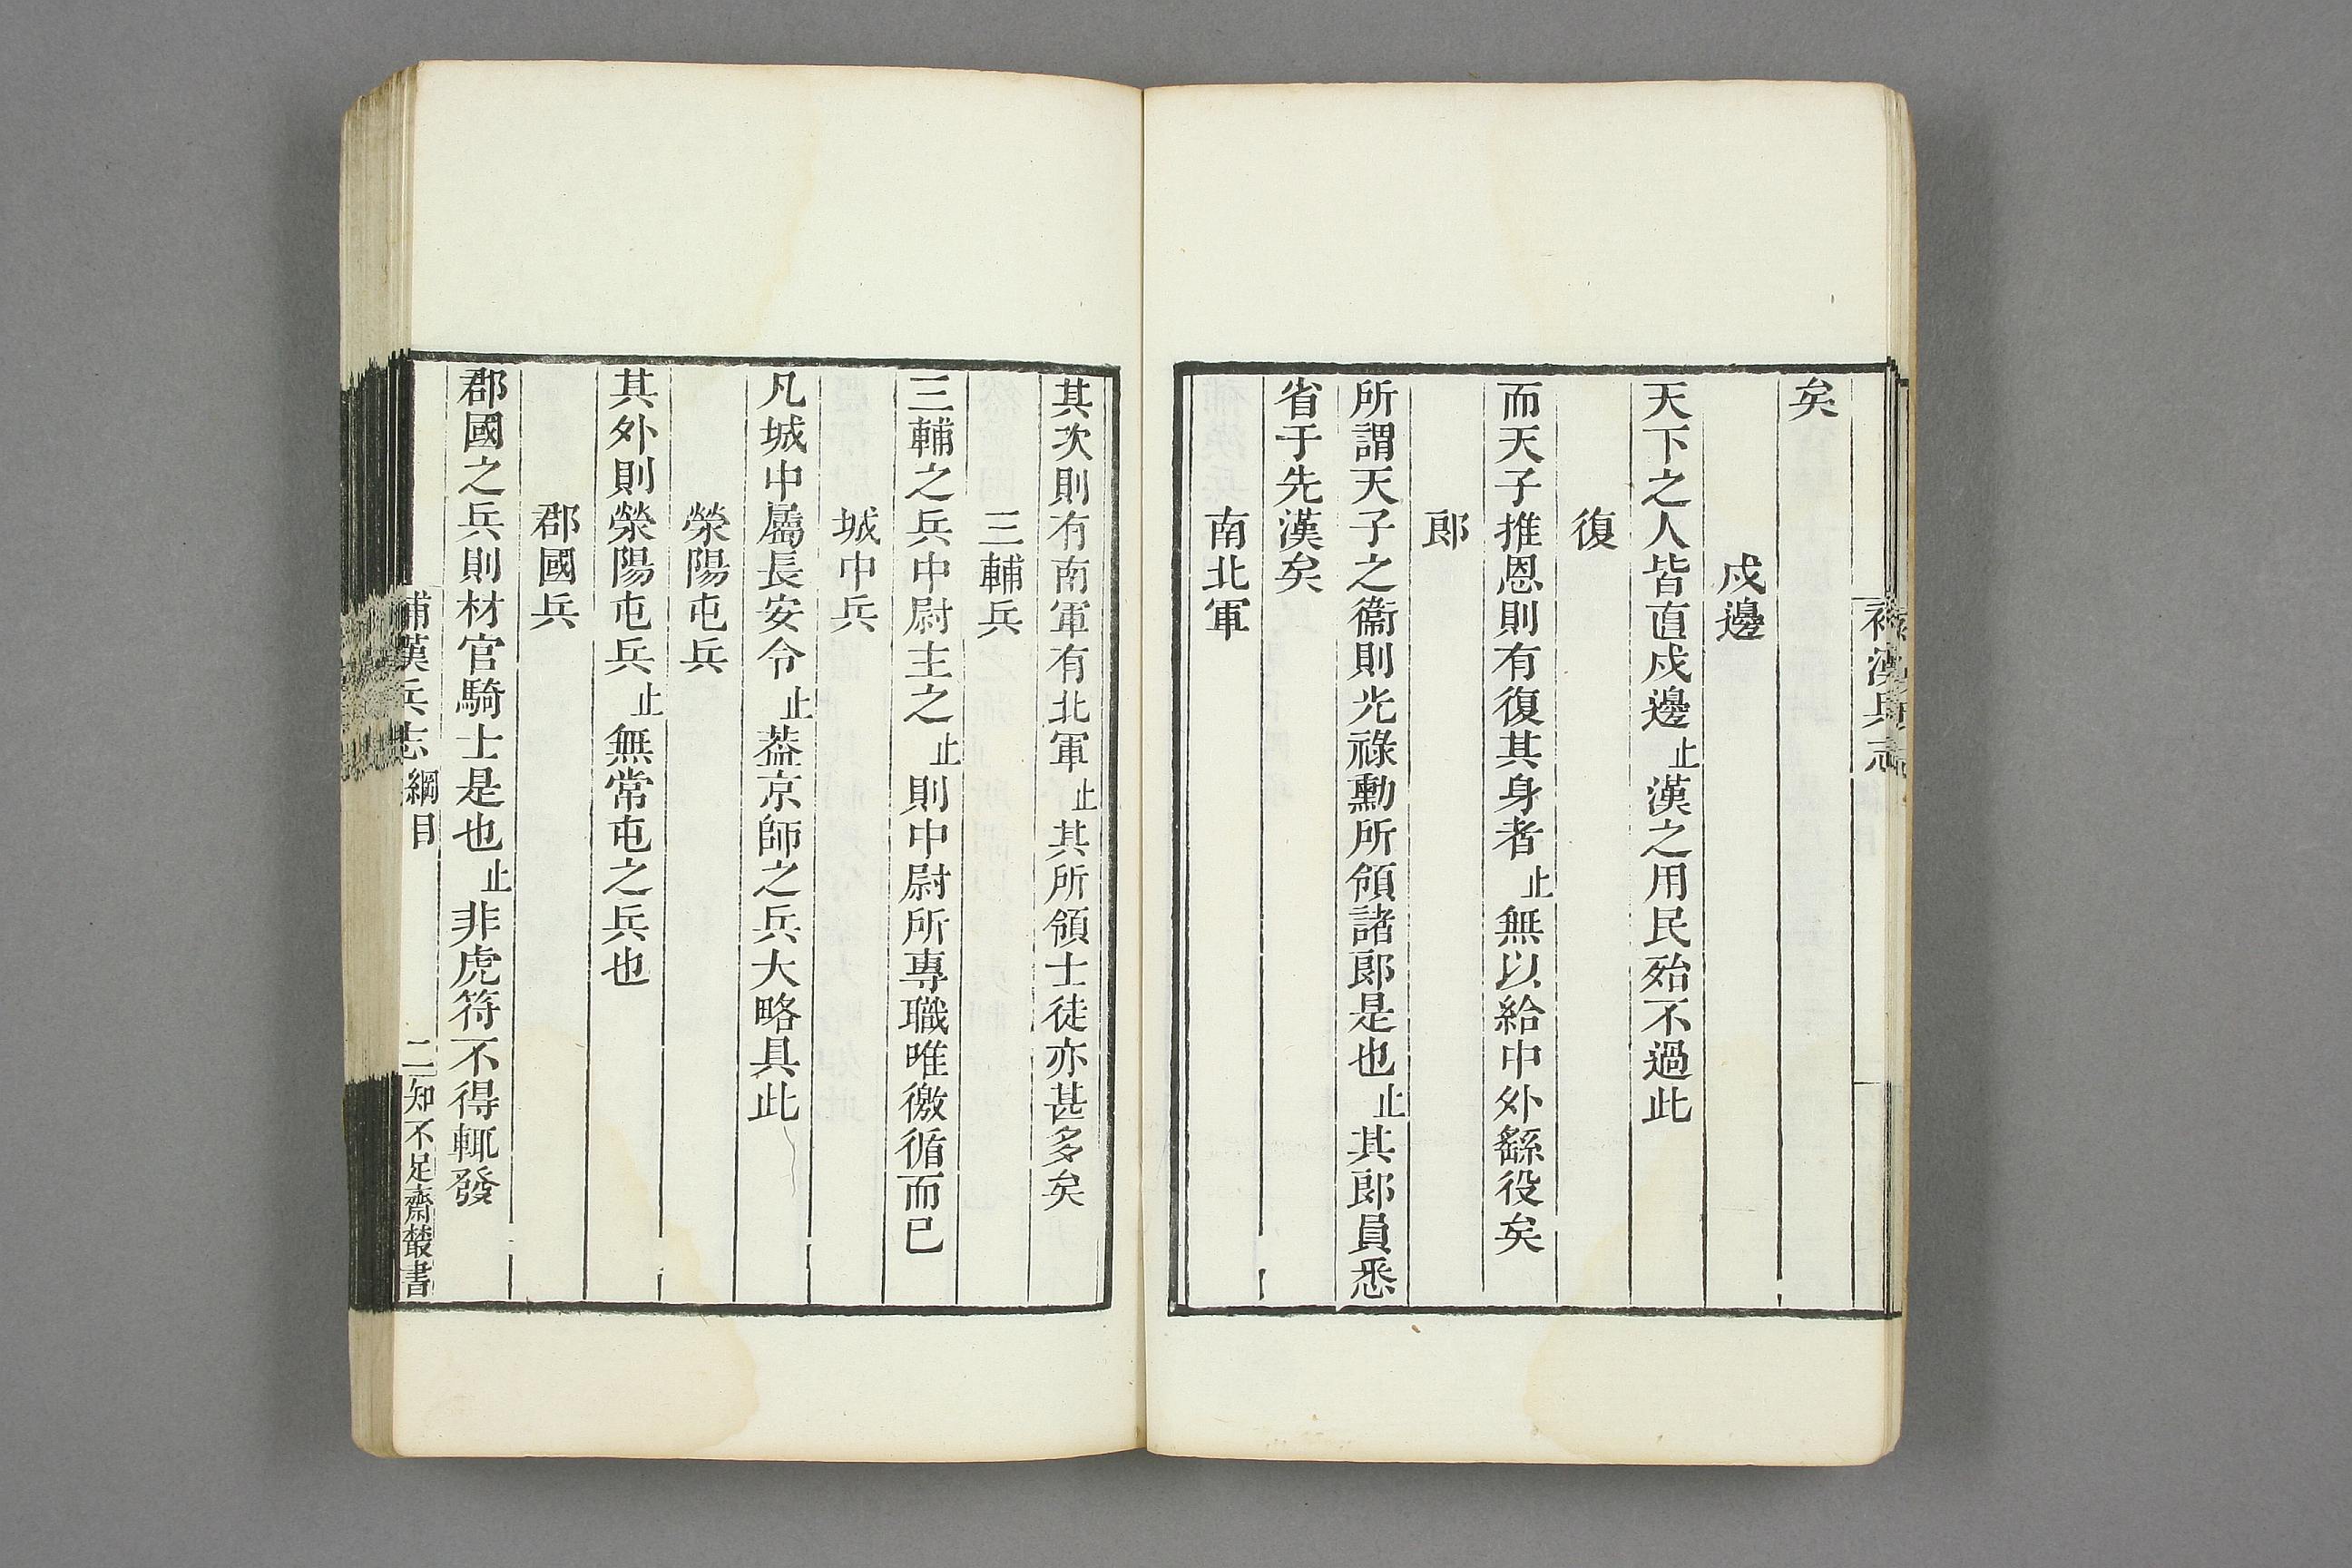 補漢兵志
矣
戍邊
天下之人皆直戍邊止漢之用民殆不過此
復
而天子推恩則有復其身者止無以給中外繇役矣
郎
所謂天子之衞則光祿勳所領諸郎是也止其郎員悉
省于先漢矣
南北軍
其次則有南軍有北軍止其所領士徒亦甚多矣
三輔兵
三輔之兵中尉主之止則中尉所專職唯徼循而已
城中兵
凡城中屬長安令止葢京師之兵大略具此
滎陽屯兵
其外則滎陽屯兵止無常屯之兵也
郡國兵
郡國之兵則材官騎士是也止非虎符不得輒發
補漢兵志 綱目 二 知不足齋叢書